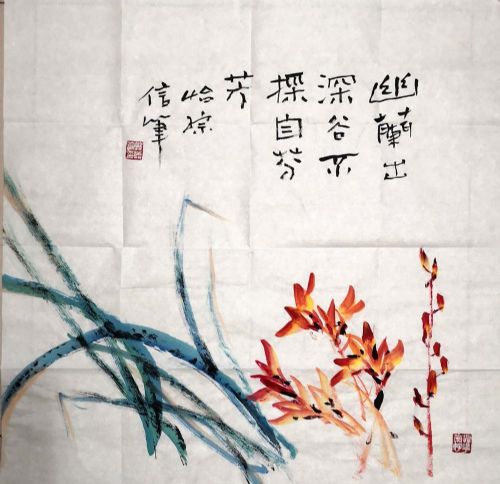 幽蘭出
深谷不
採自芬
芳
怡
信筆